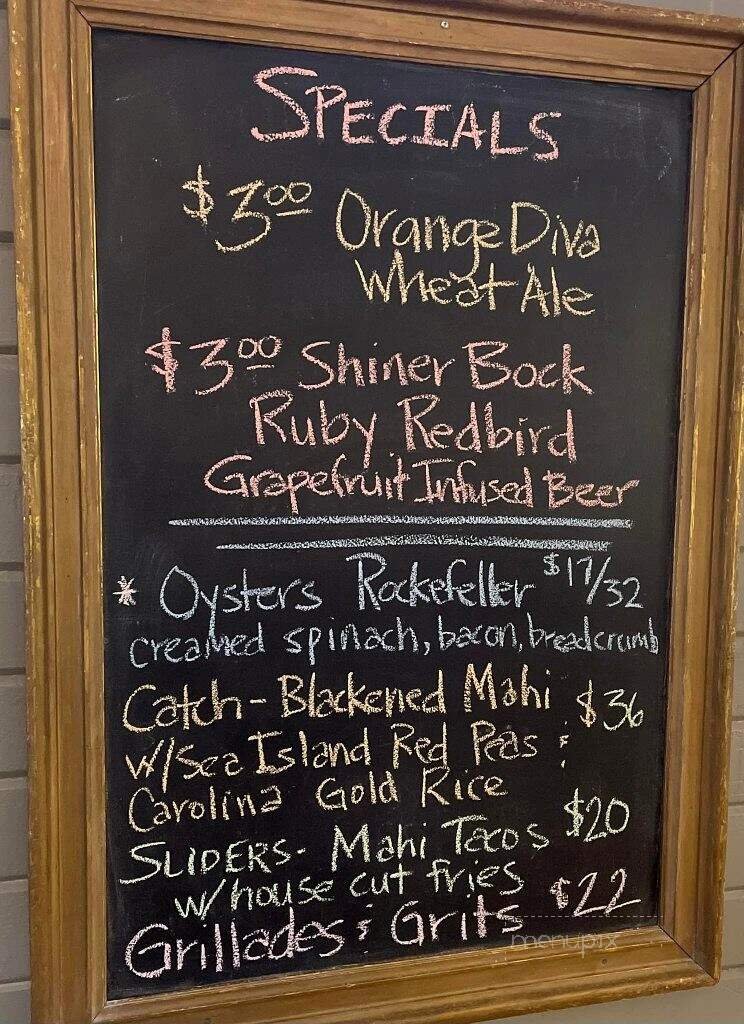 SPECIALS
$3.00 Orange Diva
Wheat Ale
$3.00 Shiner Bock
Ruby Redbird
Grapefruit Infused Beer
* Oysters Rockefeller $17/32
creamed spinach, bacon, breadcrumb
Catch - Blackened Mahi $36
w/Sea Island Red Peas &
Carolina Gold Rice
SLIDERS - Mahi Tacos $20
w/house cut fries
Grillades & Grits $22
menupix